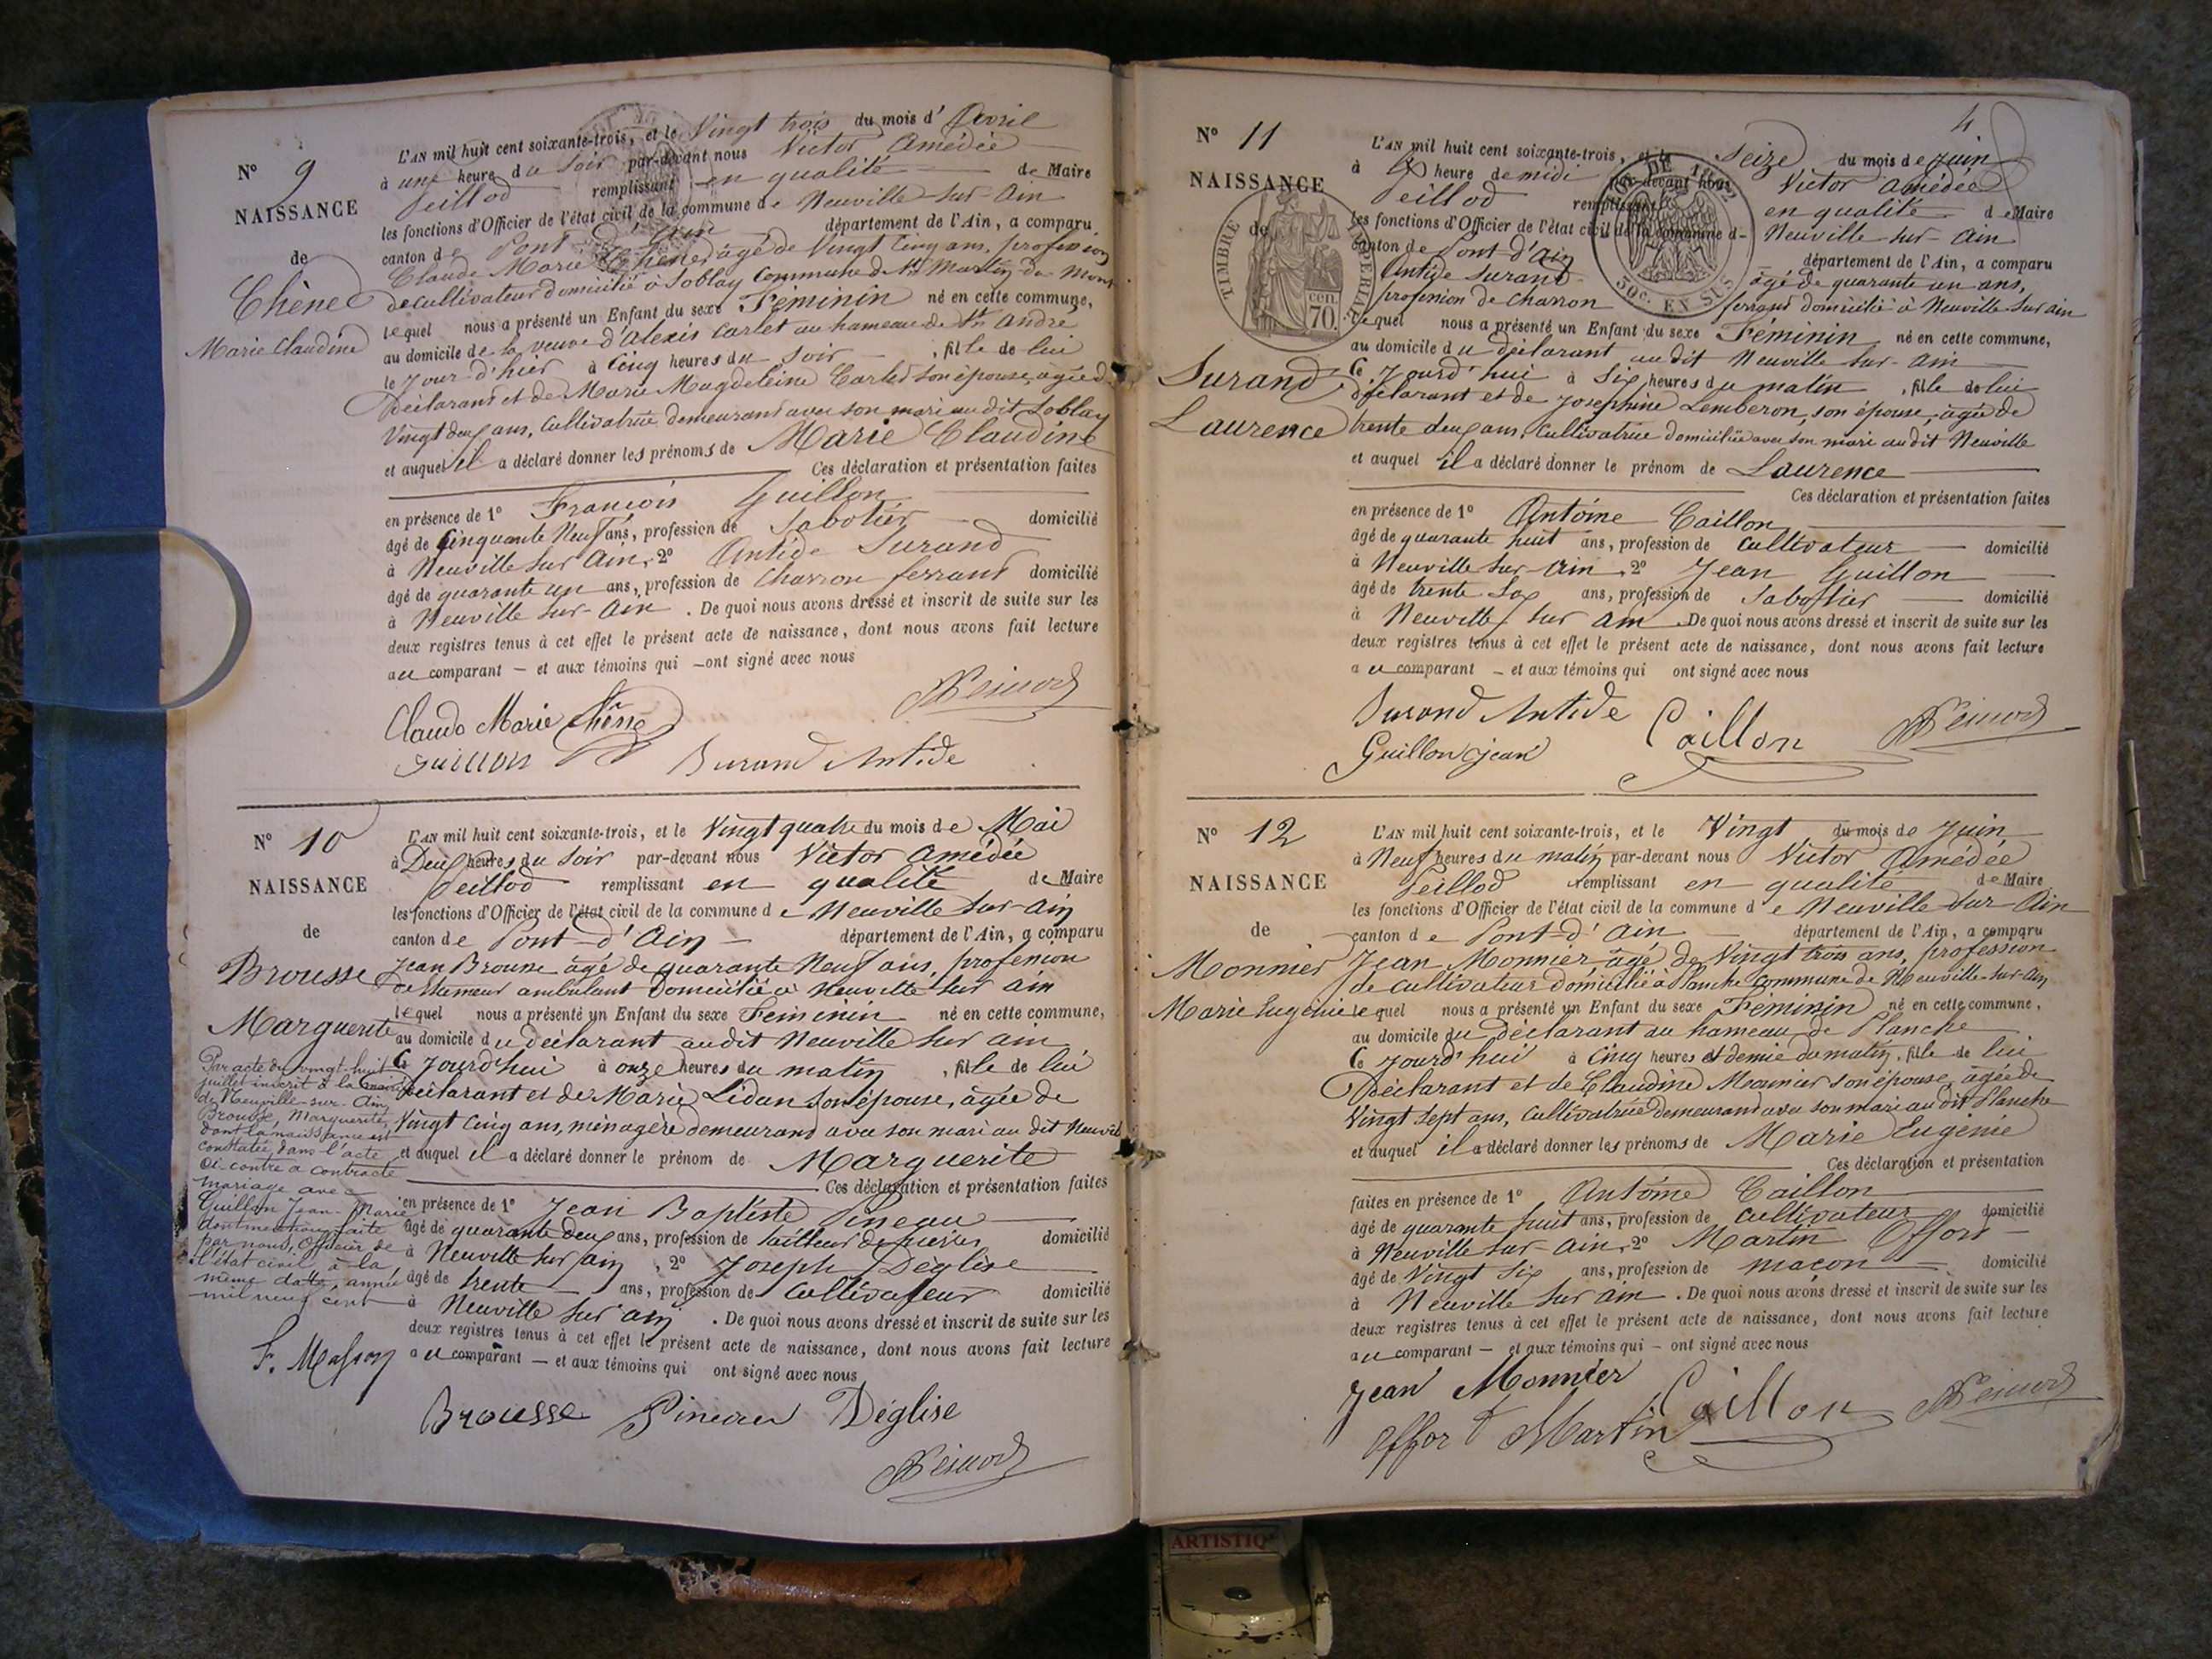 N° 9
NAISSANCE
de
Chêne
Marie Claudine
L'AN mil huit cent soixante-trois, et le Vingt trois du mois d'Avril
à une heure du soir par-devant nous Victor Amédée
Peillod remplissant en qualité de Maire
les fonctions d'Officier de l'état civil de la commune de Neuville-sur-Ain
canton de Pont d'Ain département de l'Ain, a comparu
Claude Marie Chêne âgé de Vingt Cinq ans, profession
de cultivateur domicilié à Soblay Commune de St Martin-du-Mont
lequel nous a présenté un Enfant du sexe Féminin né en cette commune,
au domicile de la veuve d'Alexis Carlet au hameau de St André
le jour d'hier à Cinq heures du soir, fille de lui
Déclarant et de Marie Magdeleine Carlet son épouse, âgée de
Vingt deux ans, Cultivatrice demeurant avec son mari au dit Soblay
et auquel il a déclaré donner les prénoms de Marie Claudine
Ces déclaration et présentation faites
en présence de 1° François Guillon
âgé de Cinquante Neuf ans, profession de Sabotier domicilié
à Neuville sur Ain, 2° Antide Durand
âgé de quarante un ans, profession de Charron ferrant domicilié
à Neuville sur-Ain. De quoi nous avons dressé et inscrit de suite sur les
deux registres tenus à cet effet le présent acte de naissance, dont nous avons fait lecture
au comparant – et aux témoins qui – ont signé avec nous
Claude Marie Chêne
Guillon Durand Antide
N° 10
NAISSANCE
de
Brousse
Marguerite
Par acte du vingt-huit
juillet inscrit à la mairie
de Neuville-sur-Ain,
Brousse, Marguerite,
dont la naissance est
constatée dans l'acte
ci-contre a contracté
mariage avec
Guillon Jean-Marie
dont mention faite
par nous, Officier de
l'état civil à la
même date, année
mil neuf cent
F. Masson
L'AN mil huit cent soixante-trois, et le Vingt quatre du mois de Mai
à Deux heures du soir par-devant nous Victor Amédée
Peillod remplissant en qualité de Maire
les fonctions d'Officier de l'état civil de la commune de Neuville sur-Ain
canton de Pont-d'Ain département de l'Ain, a comparu
Jean Brousse âgé de quarante Neuf ans, profession
ambulant Domicilié à Neuville sur Ain
lequel nous a présenté un Enfant du sexe Féminin né en cette commune,
au domicile du déclarant audit Neuville sur Ain
Ce jourd'hui à onze heures du matin, fille de lui
Déclarant et de Marie Lidan son épouse, âgée de
Vingt Cinq ans, ménagère demeurant avec son mari au dit Neuville
et auquel il a déclaré donner le prénom de Marguerite
Ces déclaration et présentation faites
en présence de 1° Jean Baptiste Pineau
âgé de quarante deux ans, profession de tailleur de pierres domicilié
à Neuville sur Ain, 2° Joseph Déglise
âgé de trente ans, profession de Cultivateur domicilié
à Neuville sur Ain. De quoi nous avons dressé et inscrit de suite sur les
deux registres tenus à cet effet le présent acte de naissance, dont nous avons fait lecture
au comparant – et aux témoins qui ont signé avec nous
Brousse Pineau Déglise
4
N° 11
NAISSANCE
de
TIMBRE IMPERIAL
cen.
70.
DE 1862
50c. EN SUS
Durand
Laurence
L'AN mil huit cent soixante-trois, et le Seize du mois de Juin
à heure de midi par-devant nous Victor Amédée
Peillod remplissant en qualité de Maire
les fonctions d'Officier de l'état civil de la commune de Neuville sur-Ain
canton de Pont-d'Ain département de l'Ain, a comparu
Antide Durand âgé de quarante un ans,
profession de charron ferrant domicilié à Neuville sur ain
lequel nous a présenté un Enfant du sexe Féminin né en cette commune,
au domicile du déclarant au dit Neuville sur-Ain
Ce jourd'hui à Six heures du matin, fille de lui
déclarant et de Josephine Lemberon, son épouse, âgée de
trente deux ans, Cultivatrice domiciliée avec son mari au dit Neuville
et auquel il a déclaré donner le prénom de Laurence
Ces déclaration et présentation faites
en présence de 1° Antoine Caillon
âgé de quarante huit ans, profession de Cultivateur domicilié
à Neuville sur-Ain, 2° Jean Guillon
âgé de trente Six ans, profession de Sabottier domicilié
à Neuville sur Ain. De quoi nous avons dressé et inscrit de suite sur les
deux registres tenus à cet effet le présent acte de naissance, dont nous avons fait lecture
au comparant – et aux témoins qui ont signé avec nous
Durand Antide Caillon
Guillon jean
N° 12
NAISSANCE
de
Monnier
Marie Eugénie
L'AN mil huit cent soixante-trois, et le Vingt du mois de Juin
à Neuf heures du matin par-devant nous Victor Amédée
Peillod remplissant en qualité de Maire
les fonctions d'Officier de l'état civil de la commune de Neuville-sur-Ain
canton de Pont-d'Ain département de l'Ain, a comparu
Jean Monnier âgé de Vingt trois ans, profession
de cultivateur domicilié à Planche Commune de Neuville-sur-Ain
lequel nous a présenté un Enfant du sexe Féminin né en cette commune,
au domicile du déclarant au hameau de Planche
Ce jourd'hui à Cinq heures et demie du matin, fille de lui
Déclarant et de Claudine Meunier son épouse, âgée de
Vingt sept ans, Cultivatrice demeurant avec son mari au dit Planche
et auquel il a déclaré donner les prénoms de Marie Eugénie
Ces déclaration et présentation
faites en présence de 1° Antoine Caillon
âgé de quarante huit ans, profession de Cultivateur domicilié
à Neuville sur-Ain, 2° Martin Offort
âgé de Vingt Six ans, profession de maçon domicilié
à Neuville sur Ain. De quoi nous avons dressé et inscrit de suite sur les
deux registres tenus à cet effet le présent acte de naissance, dont nous avons fait lecture
au comparant – et aux témoins qui – ont signé avec nous
Jean Monnier Caillon
Offort Martin
ARTISTIQ